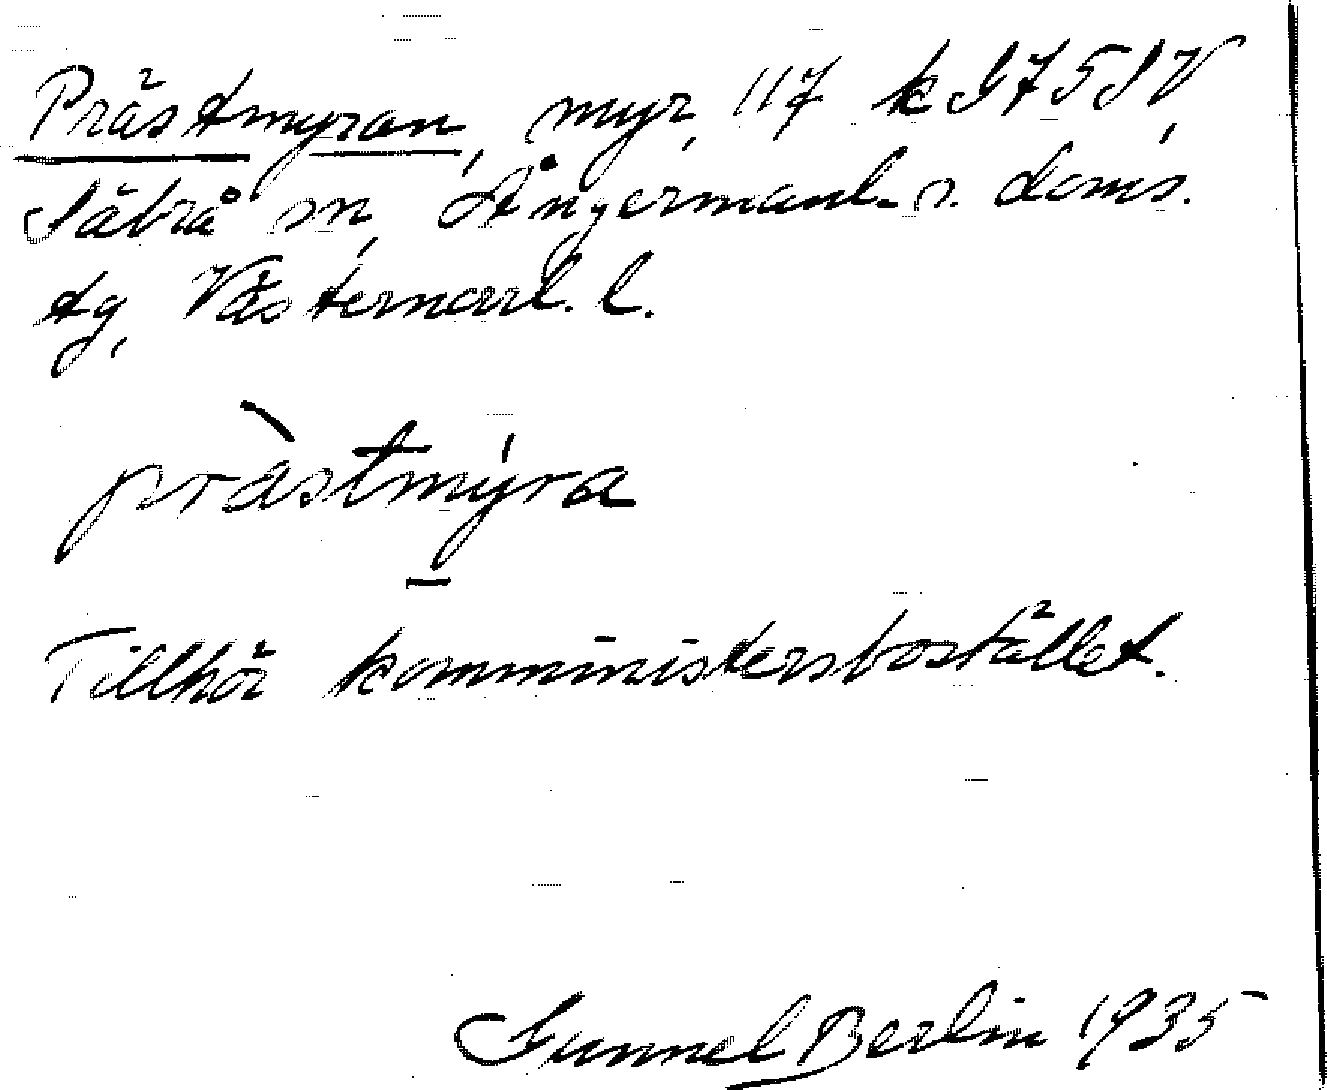 Prästmyran, myr, 117 k I 7 5 IV,
Säbrå sn, Ångermanl. s. doms.
tg, Västernorrl. l.
pràstmýra
Tillhör komministersbostället.
Sunnel Berlin 1935